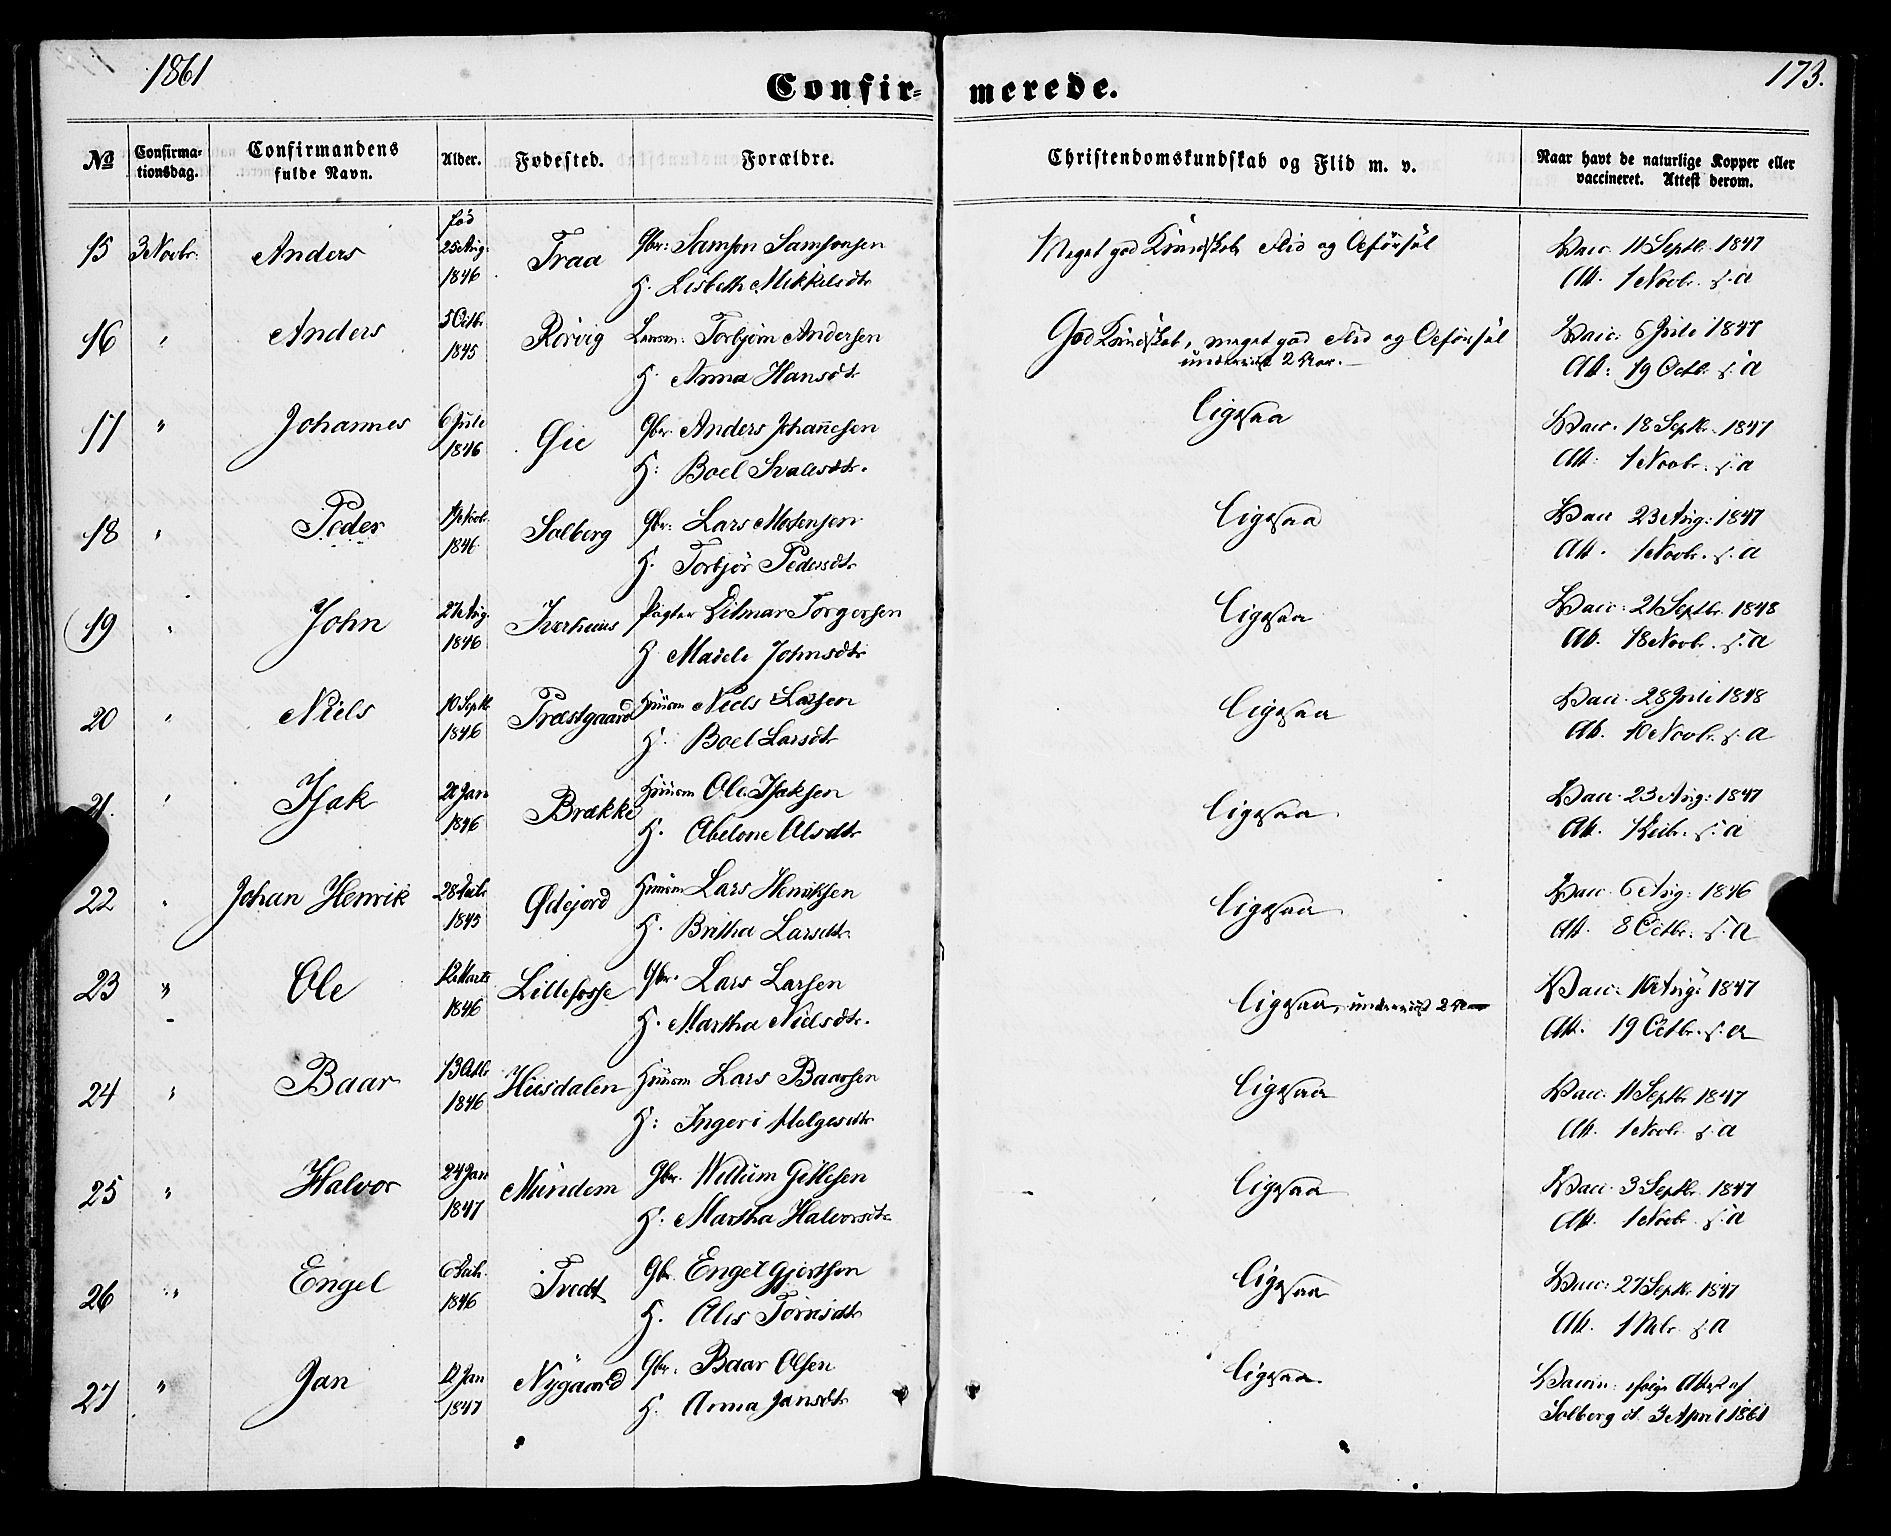 1861
173.
Confir-
merede.
No
Confirma-
tionsdag.
Confirmandens
fulde Navn.
Alder.
Fødested.
Forældre.
Christendomskundskab og Flid m. v.
Naar havt de naturlige Kopper eller
vaccineret. Attest derom.
fød
15 3 Novbr: Anders 25 Aug: 1846 Traa Gbr: Samson Samsonsen
H. Lisbeth Mikkelsdtr
Meget god Kundskab, Flid og Opførsel
Vacc. 11 Septbr. 1847
Att. 1 Novbr. s. a
16 " Anders 5 Octbr. 1845 Rørvig Torbjørn Andersen
H. Anna Hansdtr
God Kundskab, meget god Flid og Opførsel
underviist 2 Aar.
Vacc: 6 Juli 1847
Att: 19 Octbr. s. a
17 " Johannes 6 Juli 1846 Gbr. Anders Johannesen
H: Boel
Ligesaa
Vacc. 18 Septbr. 1847
Att: 1 Novbr. s. a
18 " Peder Novbr. 1846 Solberg Gbr: Lars Monsen
H. Torbjør Pedersdtr
Ligesaa
Vacc 23 Aug: 1847
Att. 1 Novbr. s. a
19 " John 27 Aug. 1846 Ditmar Torgersen
H Johnsdtr
Ligesaa
Vacc: 21 Septbr. 1848
Att. 18 Novbr. s. a
20 " Niels 10 Septbr 1846 Præstgaard Huusm Niels Larsen
H. Boel Larsdtr
Ligesaa
Vacc. 28 Juli 1848
Att. 10 Novbr. s. a
21. " Isak Jan 1846 Brække Huusm Ole Isaksen
H. Abelone Olsdtr
Ligesaa
Vacc. 23 Aug: 1847
Att. s. a
22 " Johan Henrik 28 1845 Ødejord Huusm Lars Henriksen
H. Britha Larsdtr.
Ligesaa
Vacc. 6 Aug: 1846
Att. 8 Octbr. s. a
23 " Ole 12 Marts 1846 Lillefosse Gbr. Lars Larsen
H. Martha Nielsdtr.
Ligesaa, underviist 2 Aar
Vacc: 10 Aug: 1847
Att. 19 Octbr. s. a
24 " Baar 13 Octbr 1846 Huusdalen Huusm Lars Baarsen
H: Ingeri Helgesdtr
Ligesaa
Vacc. 11 Septbr 1847
Att. 1 Novbr. s. a
25 " Halvor 24 Jan 1847 Mundem Gbr. Willum Gitlesen
H. Martha Halvorsdtr
Ligesaa
Vacc. 3 Septbr. 1847
Att. 1 Novbr. s. a
26 " Engel 6 1846 Tvedt Gbr. Engel Gjertsen
H. Alis
Ligesaa
Vacc: 27 Septbr. 1847
Att. s. a
27 " Jan 12 Jan 1847 Nygaard Gbr. Baar Olsen
H. Anna Jansdtr
Ligesaa
Vaccin: ifølge Attest af
Solberg d. 3 April 1861